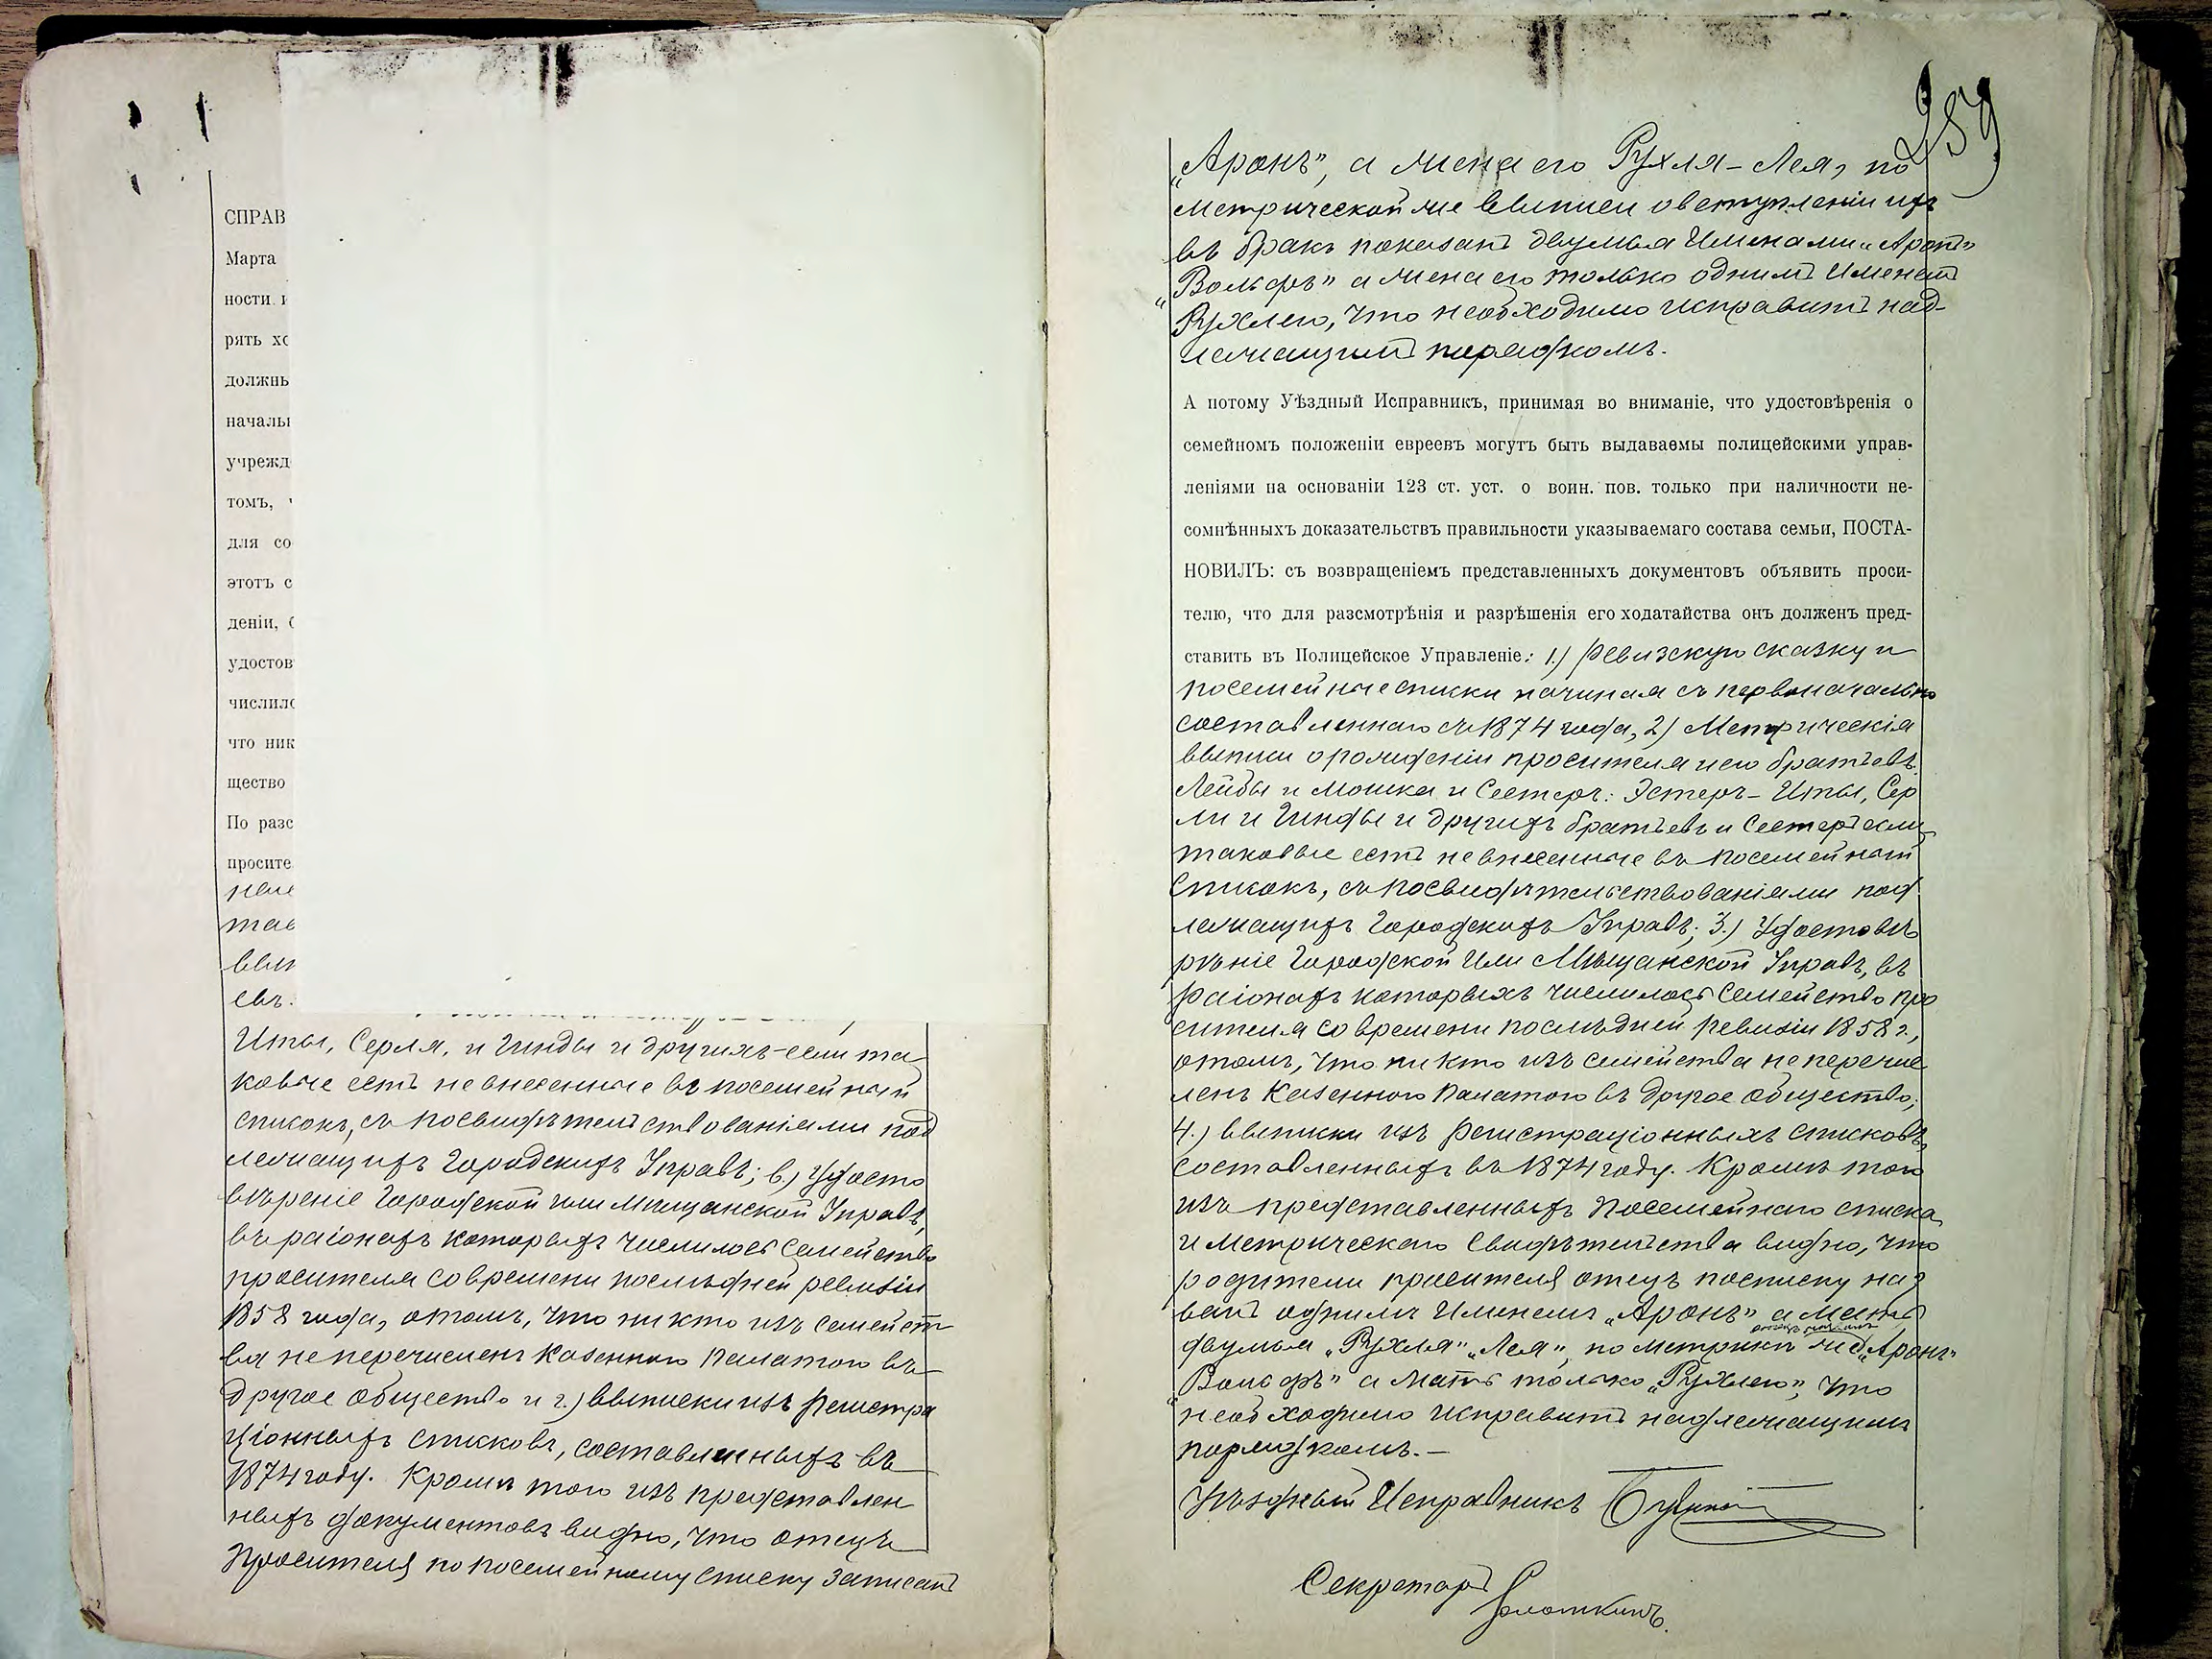 СПРАВ
Марта
ности и
рять хо
должны
началь
учрежд
томъ,
для со
этотъ с
деніи,
удостов
числило
что ник
щество
По разс
просите
нем
тав
вып
евъ.
Иты, Серля, и Гинды и другихъ-если та
ковые есть не внесенные въ посемейный
списокъ, съ посвидѣтельствованіями над
лежащихъ Городскихъ Управъ; в.) Удосто
вѣреніе Городской или Мѣщанской Управъ,
въ раіонахъ которыхъ числилось семейство
просителя со времени послѣдней ревизіи
1858 года, о томъ, что никто изъ семейст
ва не перечисленъ Казенною Палатою въ
другое общество и г.) выписки изъ регистра
ціонныхъ списковъ, составленныхъ въ
1874 году. Кромѣ того изъ представлен
ныхъ документовъ видно, что отецъ
просителя по посемейному списку записанъ
259
„Аронъ”, а жена его Рухля-Лея, по
метрической же выписи о вступленіи ихъ
въ бракъ показанъ двумя именами „Аронъ”
„Вольфъ” а жена его только однимъ именемъ
Рухлею, что необходимо исправить над-
лежащимъ порядкомъ.
А потому Уѣздный Исправникъ, принимая во вниманіе, что удостовѣренія о
семейномъ положеніи евреевъ могутъ быть выдаваемы полицейскими управ-
леніями на основаніи 123 ст. уст. о воин. пов. только при наличности не-
сомнѣнныхъ доказательствъ правильности указываемаго состава семьи, ПОСТА-
НОВИЛЪ: съ возвращеніемъ представленныхъ документовъ объявить проси-
телю, что для разсмотрѣнія и разрѣшенія его ходатайства онъ долженъ пред-
ставить въ Полицейское Управленіе: 1.) ревизскую сказку и
посемейные списки начиная съ первоначально
составленнаго съ 1874 года, 2) Метрическія
выписи о рожденіи просителя и его братьевъ
Лейбы и Мошка и сестеръ: Эстеръ-Иты, Сер
ли и Гинды и другихъ братьевъ и сестеръ если
таковые есть не внесенные въ посемейный
списокъ, съ посвидѣтельствованіями над
лежащихъ Городскихъ Управъ; 3.) Удостовѣ
реніе Городской или Мѣщанской Управъ, въ
раіонахъ которыхъ числилось семейство про
сителя со времени послѣдней ревизіи 1858 г.,
о томъ, что никто изъ семейства не перечис
ленъ Казенною Палатою въ другое общество;
4.) выписки изъ регистраціонныхъ списковъ,
составленныхъ въ 1874 году. Кромѣ того
изъ представленныхъ посемейнаго списка
и метрическаго свидѣтельства видно, что
родители просителя отецъ по списку наз
ванъ однимъ именемъ „Аронъ” а мать
двумя „Рухля” „Лея”, по метрики же „Аронъ”
„Вольфъ” а мать только „Рухлею”, что
необходимо исправить надлежащимъ
порядкомъ.—
Уѣздный Исправникъ
Секретарь